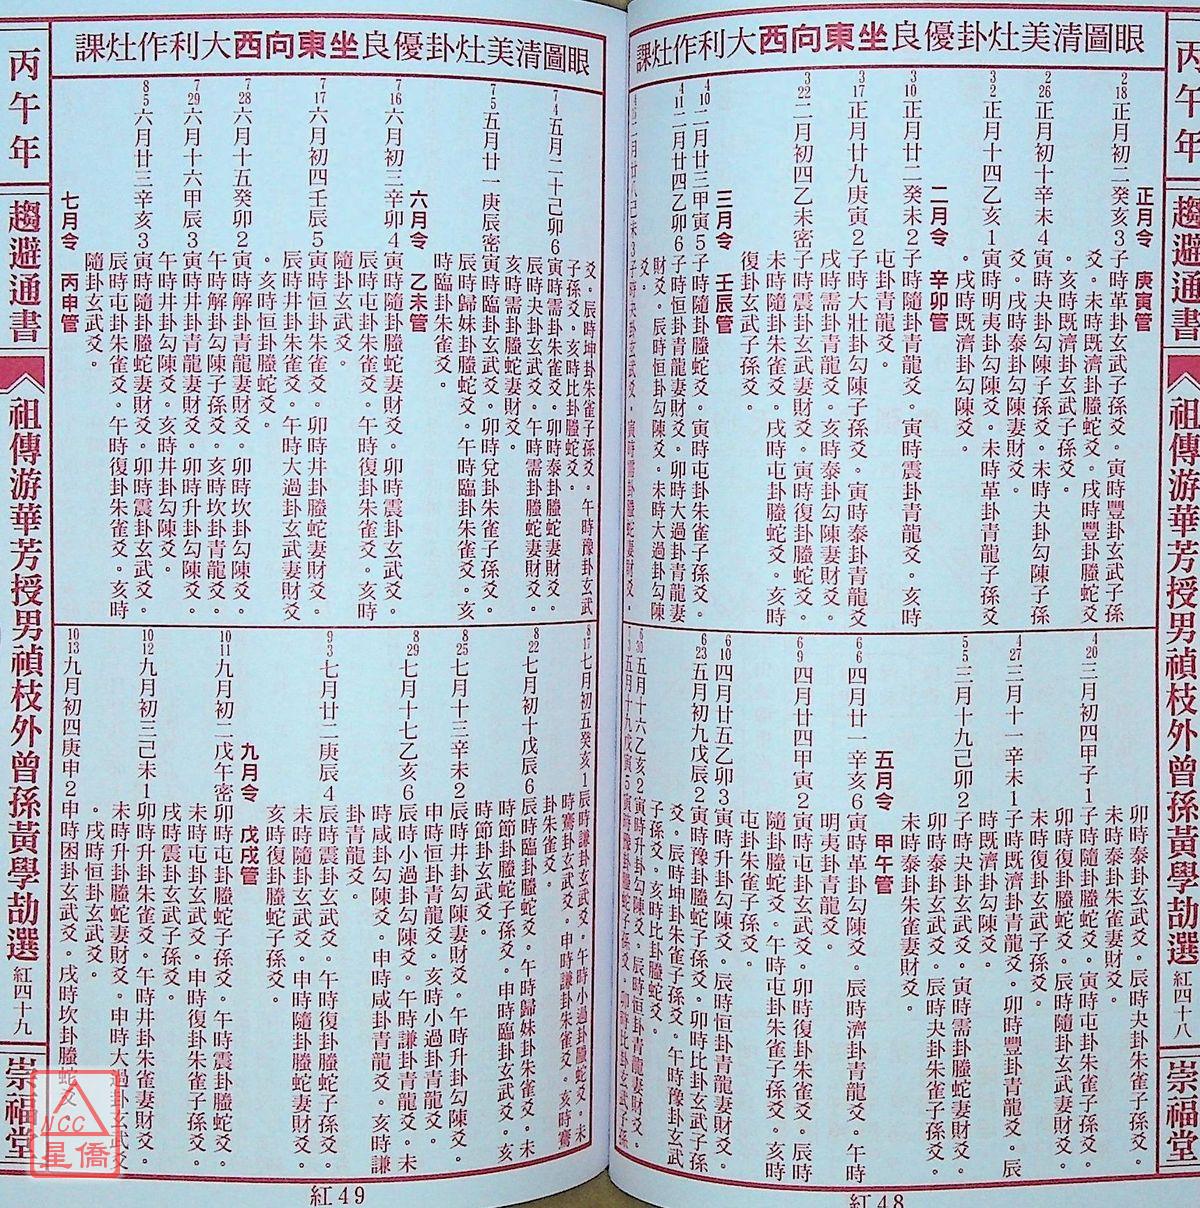 丙午年
趨避通書
祖傳游華芳授男禎枝外曾孫黃學劼選
紅四十八
崇福堂
眼圖清美灶卦優良坐東向西大利作灶課
正月令 庚寅管
2 18 正月初二癸亥3子時革卦玄武子孫爻。寅時豐卦玄武子孫
爻。未時既濟卦螣蛇爻。戌時豐卦螣蛇爻
。亥時既濟卦玄武子孫爻。
2 26 正月初十辛未4寅時夬卦勾陳子孫爻。未時夬卦勾陳子孫
爻。戌時泰卦勾陳妻財爻。
3 2 正月十四乙亥1寅時明夷卦勾陳爻。未時革卦青龍子孫爻
。戌時既濟卦勾陳爻。
二月令 辛卯管
3 10 正月廿二癸未2子時隨卦青龍爻。寅時震卦青龍爻。亥時
屯卦青龍爻。
3 17 正月廿九庚寅2子時大壯卦勾陳子孫爻。寅時泰卦青龍爻
。戌時需卦青龍爻。亥時泰卦勾陳妻財爻。
3 22 二月初四乙未密子時震卦玄武妻財爻。寅時復卦螣蛇爻。
未時隨卦玄武妻財爻。戌時屯卦螣蛇爻。亥時
復卦玄武子孫爻。
三月令 壬辰管
4 10 二月廿三甲寅5子時恒卦螣蛇爻。寅時屯卦朱雀子孫爻。
4 11 二月廿四乙卯6子時恒卦青龍妻財爻。卯時大過卦青龍妻
財爻。辰時恒卦勾陳爻。未時大過卦勾陳
爻。
卯時泰卦玄武爻。辰時夬卦朱雀子孫爻。
未時泰卦朱雀妻財爻。
4 20 三月初四甲子1子時隨卦螣蛇爻。寅時屯卦朱雀子孫爻。
卯時復卦螣蛇爻。辰時隨卦玄武妻財爻。
未時復卦玄武子孫爻。
4 27 三月十一辛未1子時既濟卦青龍爻。卯時豐卦青龍爻。辰
時既濟卦勾陳爻。
5 5 三月十九己卯2子時夬卦玄武爻。寅時需卦螣蛇妻財爻。
卯時泰卦玄武爻。辰時夬卦朱雀子孫爻。
未時泰卦朱雀妻財爻。
五月令 甲午管
6 6 四月廿一辛亥6寅時革卦勾陳爻。辰時濟卦青龍爻。午時
明夷卦青龍爻。
6 9 四月廿四甲寅2寅時屯卦玄武爻。卯時復卦玄武爻。辰時
隨卦螣蛇妻財爻。午時屯卦螣蛇爻。亥時
屯卦朱雀子孫爻。
6 10 四月廿五乙卯3寅時升卦勾陳爻。辰時恒卦青龍妻財爻。
6 23 五月初九戊辰2寅時豫卦螣蛇子孫爻。卯時比卦玄武子孫
爻。辰時坤卦朱雀子孫爻。午時豫卦玄武
子孫爻。亥時比卦螣蛇爻。
紅48
眼圖清美灶卦優良坐東向西大利作灶課
爻。辰時坤卦朱雀子孫爻。午時豫卦玄武
子孫爻。亥時比卦螣蛇爻。
7 4 五月二十己卯6寅時需卦朱雀爻。卯時泰卦朱雀妻財爻。
辰時夬卦玄武爻。午時需卦螣蛇妻財爻。
亥時需卦螣蛇妻財爻。
7 5 五月廿一庚辰密寅時臨卦玄武爻。卯時兌卦朱雀子孫爻。
辰時歸妹卦螣蛇爻。午時臨卦朱雀爻。亥
時臨卦朱雀爻。
六月令 乙未管
7 16 六月初三辛卯4寅時隨卦螣蛇妻財爻。卯時震卦玄武爻。
辰時屯卦朱雀爻。午時復卦朱雀爻。亥時
隨卦玄武爻。
7 17 六月初四壬辰5寅時恒卦朱雀爻。卯時井卦螣蛇妻財爻。
辰時井卦朱雀爻。午時大過卦玄武妻財爻
。亥時恒卦螣蛇爻。
7 28 六月十五癸卯2寅時解卦青龍妻財爻。卯時坎卦勾陳爻。
午時解卦勾陳子孫爻。亥時坎卦青龍爻。
7 29 六月十六甲辰3寅時井卦青龍妻財爻。卯時升卦勾陳爻。
午時井卦勾陳爻。亥時井卦勾陳爻。
8 5 六月廿三辛亥3寅時隨卦螣蛇妻財爻。卯時震卦玄武爻。
辰時屯卦朱雀爻。午時復卦朱雀爻。亥時
隨卦玄武爻。
七月令 丙申管
8 17 七月初五癸亥1辰時謙卦玄武爻。午時小過卦螣蛇爻。未
時蹇卦玄武爻。申時謙卦朱雀爻。亥時蹇
卦朱雀爻。
8 22 七月初十戊辰6辰時臨卦螣蛇爻。午時歸妹卦朱雀爻。未
時節卦螣蛇子孫爻。申時臨卦玄武爻。亥
時節卦玄武爻。
8 25 七月十三辛未2辰時井卦勾陳爻。午時升卦勾陳爻。
申時恒卦青龍爻。亥時小過卦青龍爻。
8 29 七月十七乙亥6辰時小過卦勾陳爻。午時謙卦青龍爻。未
時咸卦勾陳爻。申時咸卦青龍爻。亥時謙
卦青龍爻。
9 3 七月廿二庚辰4辰時震卦玄武爻。午時復卦螣蛇子孫爻。
未時屯卦螣蛇爻。申時隨卦玄武妻財爻。
亥時復卦螣蛇子孫爻。
九月令 戊戌管
10 11 九月初二戊午密卯時屯卦螣蛇子孫爻。午時震卦螣蛇爻。
未時屯卦玄武爻。申時復卦朱雀子孫爻。
戌時震卦玄武子孫爻。
10 12 九月初三己未1卯時升卦朱雀爻。午時井卦朱雀妻財爻。
未時升卦螣蛇妻財爻。申時大過卦玄武爻
。戌時恒卦玄武爻。
10 13 九月初四庚申2申時困卦玄武爻。戌時坎卦螣蛇爻。
紅49
丙午年
趨避通書
祖傳游華芳授男禎枝外曾孫黃學劼選
紅四十九
崇福堂
NCC
星僑